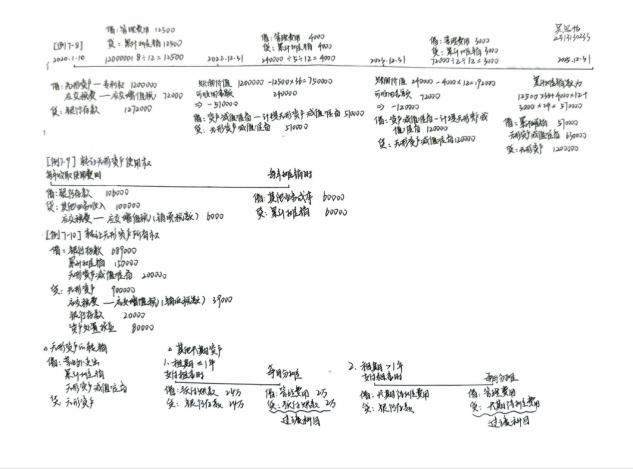 借:管理费用 12500
贷:累计摊销 12500
借:管理费用 4000
贷:累计摊销 4000
借:管理费用 3000
贷:累计摊销 3000
[例7-8]
2020.1.10 1200000÷8÷12=12500 2022.12.31 240000÷5÷12=4000 2023.12.31 72000÷2÷12=3000 2025.12.31
借:无形资产—专利权 1200000
应交税费—应交增值税 72000
贷:银行存款 1272000
账面价值 1200000-12500×36=750000
可收回金额 240000
⇒ -510000
借:资产减值损失—计提无形资产减值准备 510000
贷:无形资产减值准备 510000
账面价值 240000-4000×12=192000
可收回金额 72000
⇒ -120000
借:资产减值损失—计提无形资产减值准备 120000
贷:无形资产减值准备 120000
累计摊销数为
12500×36+4000×12+
3000×24=570000
借:累计摊销 570000
无形资产减值准备 630000
贷:无形资产 1200000
[例7-9] 转让无形资产使用权
每年收取使用费时 每年摊销时
借:银行存款 106000
贷:其他业务收入 100000
应交税费—应交增值税(销项税额) 6000
借:其他业务成本 60000
贷:累计摊销 60000
[例7-10] 转让无形资产所有权
借:银行存款 689000
累计摊销 150000
无形资产减值准备 200000
贷:无形资产 900000
应交税费—应交增值税(销项税额) 39000
银行存款 20000
资产处置损益 80000
△ 无形资产的转销
借:营业外支出
累计摊销
无形资产减值准备
贷:无形资产
△ 其他长期资产
1. 租期≤1年
支付租金时 每月分摊
借:预付账款 24万
贷:银行存款 24万
借:管理费用 2万
贷:预付账款 2万
过渡科目
2. 租期>1年
支付租金时 每月分摊
借:长期待摊费用
贷:银行存款
借:管理费用
贷:长期待摊费用
过渡科目